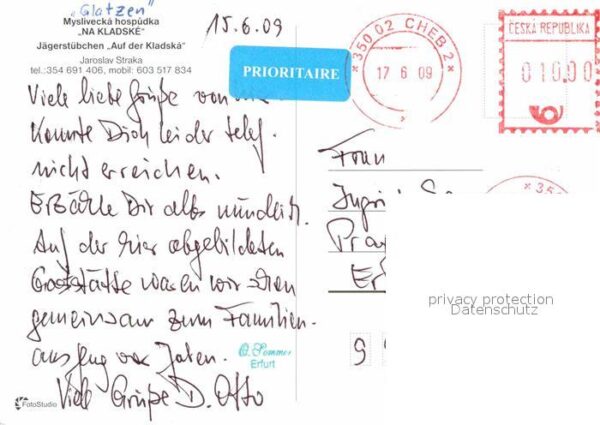 "Glatzen"
Myslivecká hospúdka
„NA KLADSKÉ“
Jägerstübchen „Auf der Kladská“
Jaroslav Straka
tel.:354 691 406, mobil: 603 517 834
15.6.09
PRIORITAIRE
* 350 02 CHEB 2 *
17 6 09
ČESKÁ REPUBLIKA
01000
Viele liebe Grüße von
Konnte Dich leider telef.
nicht erreichen.
Erzähle Dir alles mündlich.
Auf der hier abgebildeten
Gaststätte waren wir schon
gemeinsam zum Familien-
ausflug vor Jahren.
Viele Grüße D. Otto
Frau
Ingrid
Er
9 9
* 35
O. Sommer
Erfurt
privacy protection
Datenschutz
FotoStudio